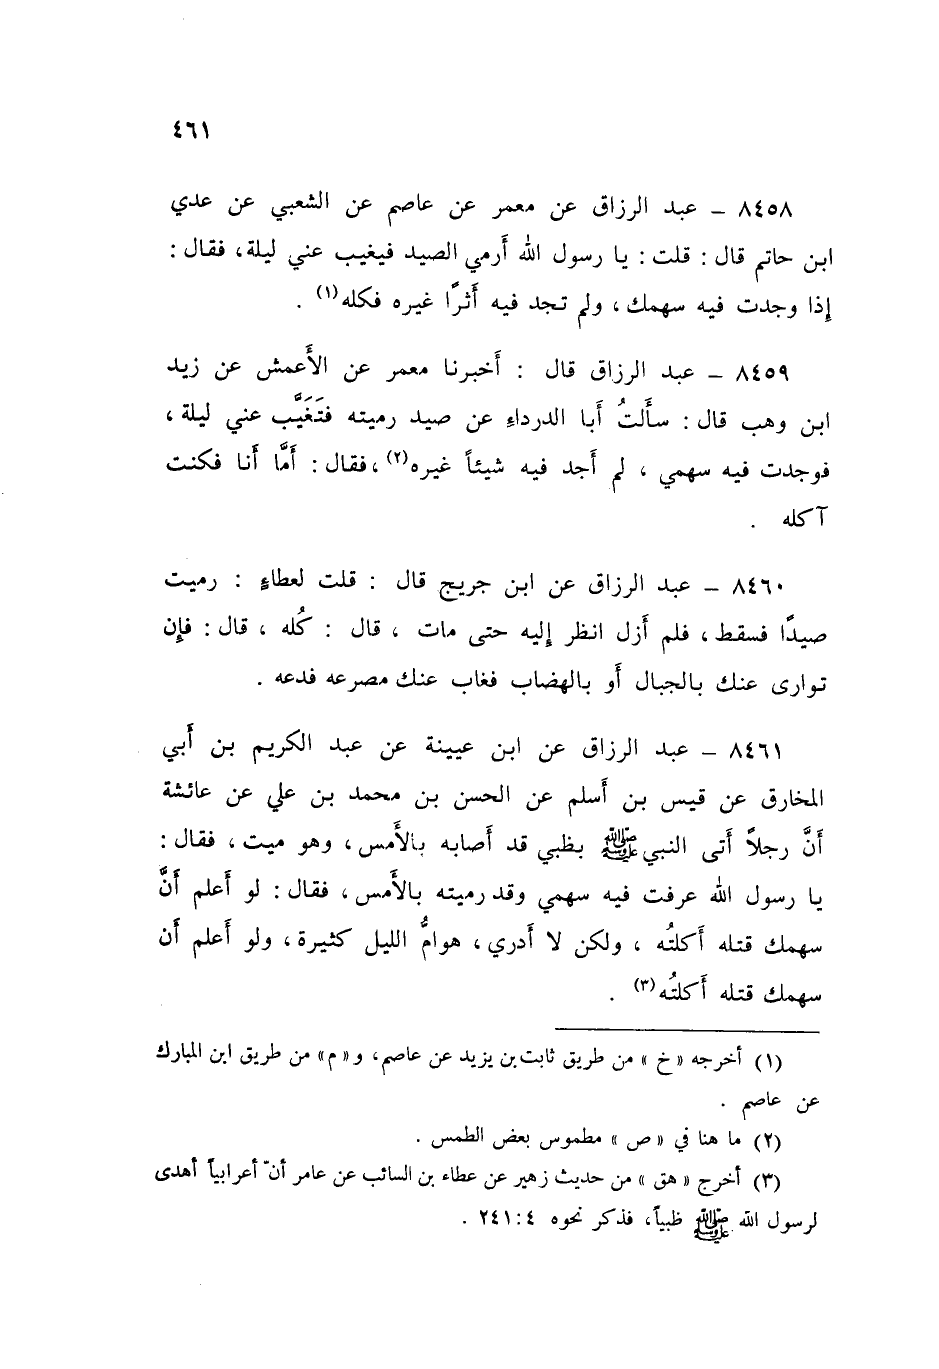 ٤٦١
٨٤٥٨ – عبد الرزاق عن معمر عن عاصم عن الشعبي عن عدي
ابن حاتم قال : قلت : يا رسول الله أرمي الصيد فيغيب عني ليلة ، فقال :
إذا وجدت فيه سهمك ، ولم تجد فيه أثرًا غيره فكله(١) .
٨٤٥٩ – عبد الرزاق قال : أخبرنا معمر عن الأعمش عن زيد
ابن وهب قال : سألتُ أبا الدرداء عن صيد رميته فتَغَيَّب عني ليلة ،
فوجدت فيه سهمي ، لم أجد فيه شيئاً غيره(٢) ، فقال : أمَّا أنا فكنت
آكله .
٨٤٦٠ – عبد الرزاق عن ابن جريج قال : قلت لعطاءٍ : رميت
صيدًا فسقط ، فلم أزل انظر إليه حتى مات ، قال : كُله ، قال : فإن
توارى عنك بالجبال أو بالهضاب فغاب عنك مصرعه فدعه .
٨٤٦١ – عبد الرزاق عن ابن عيينة عن عبد الكريم بن أبي
المخارق عن قيس بن أسلم عن الحسن بن محمد بن علي عن عائشة
أنَّ رجلاً أتى النبي ﷺ بظبي قد أصابه بالأمس ، وهو ميت ، فقال :
يا رسول الله عرفت فيه سهمي وقد رميته بالأمس ، فقال : لو أعلم أنَّ
سهمك قتله أكلتُه ، ولكن لا أدري ، هوامُّ الليل كثيرة ، ولو أعلم أن
سهمك قتله أكلتُه(٣) .
(١) أخرجه « خ » من طريق ثابت بن يزيد عن عاصم ، و « م » من طريق ابن المبارك
عن عاصم .
(٢) ما هنا في « ص » مطموس بعض الطمس .
(٣) أخرج « هق » من حديث زهير عن عطاء بن السائب عن عامر أنّ أعرابياً أهدى
لرسول الله ﷺ ظبياً ، فذكر نحوه ٤ : ٢٤١ .